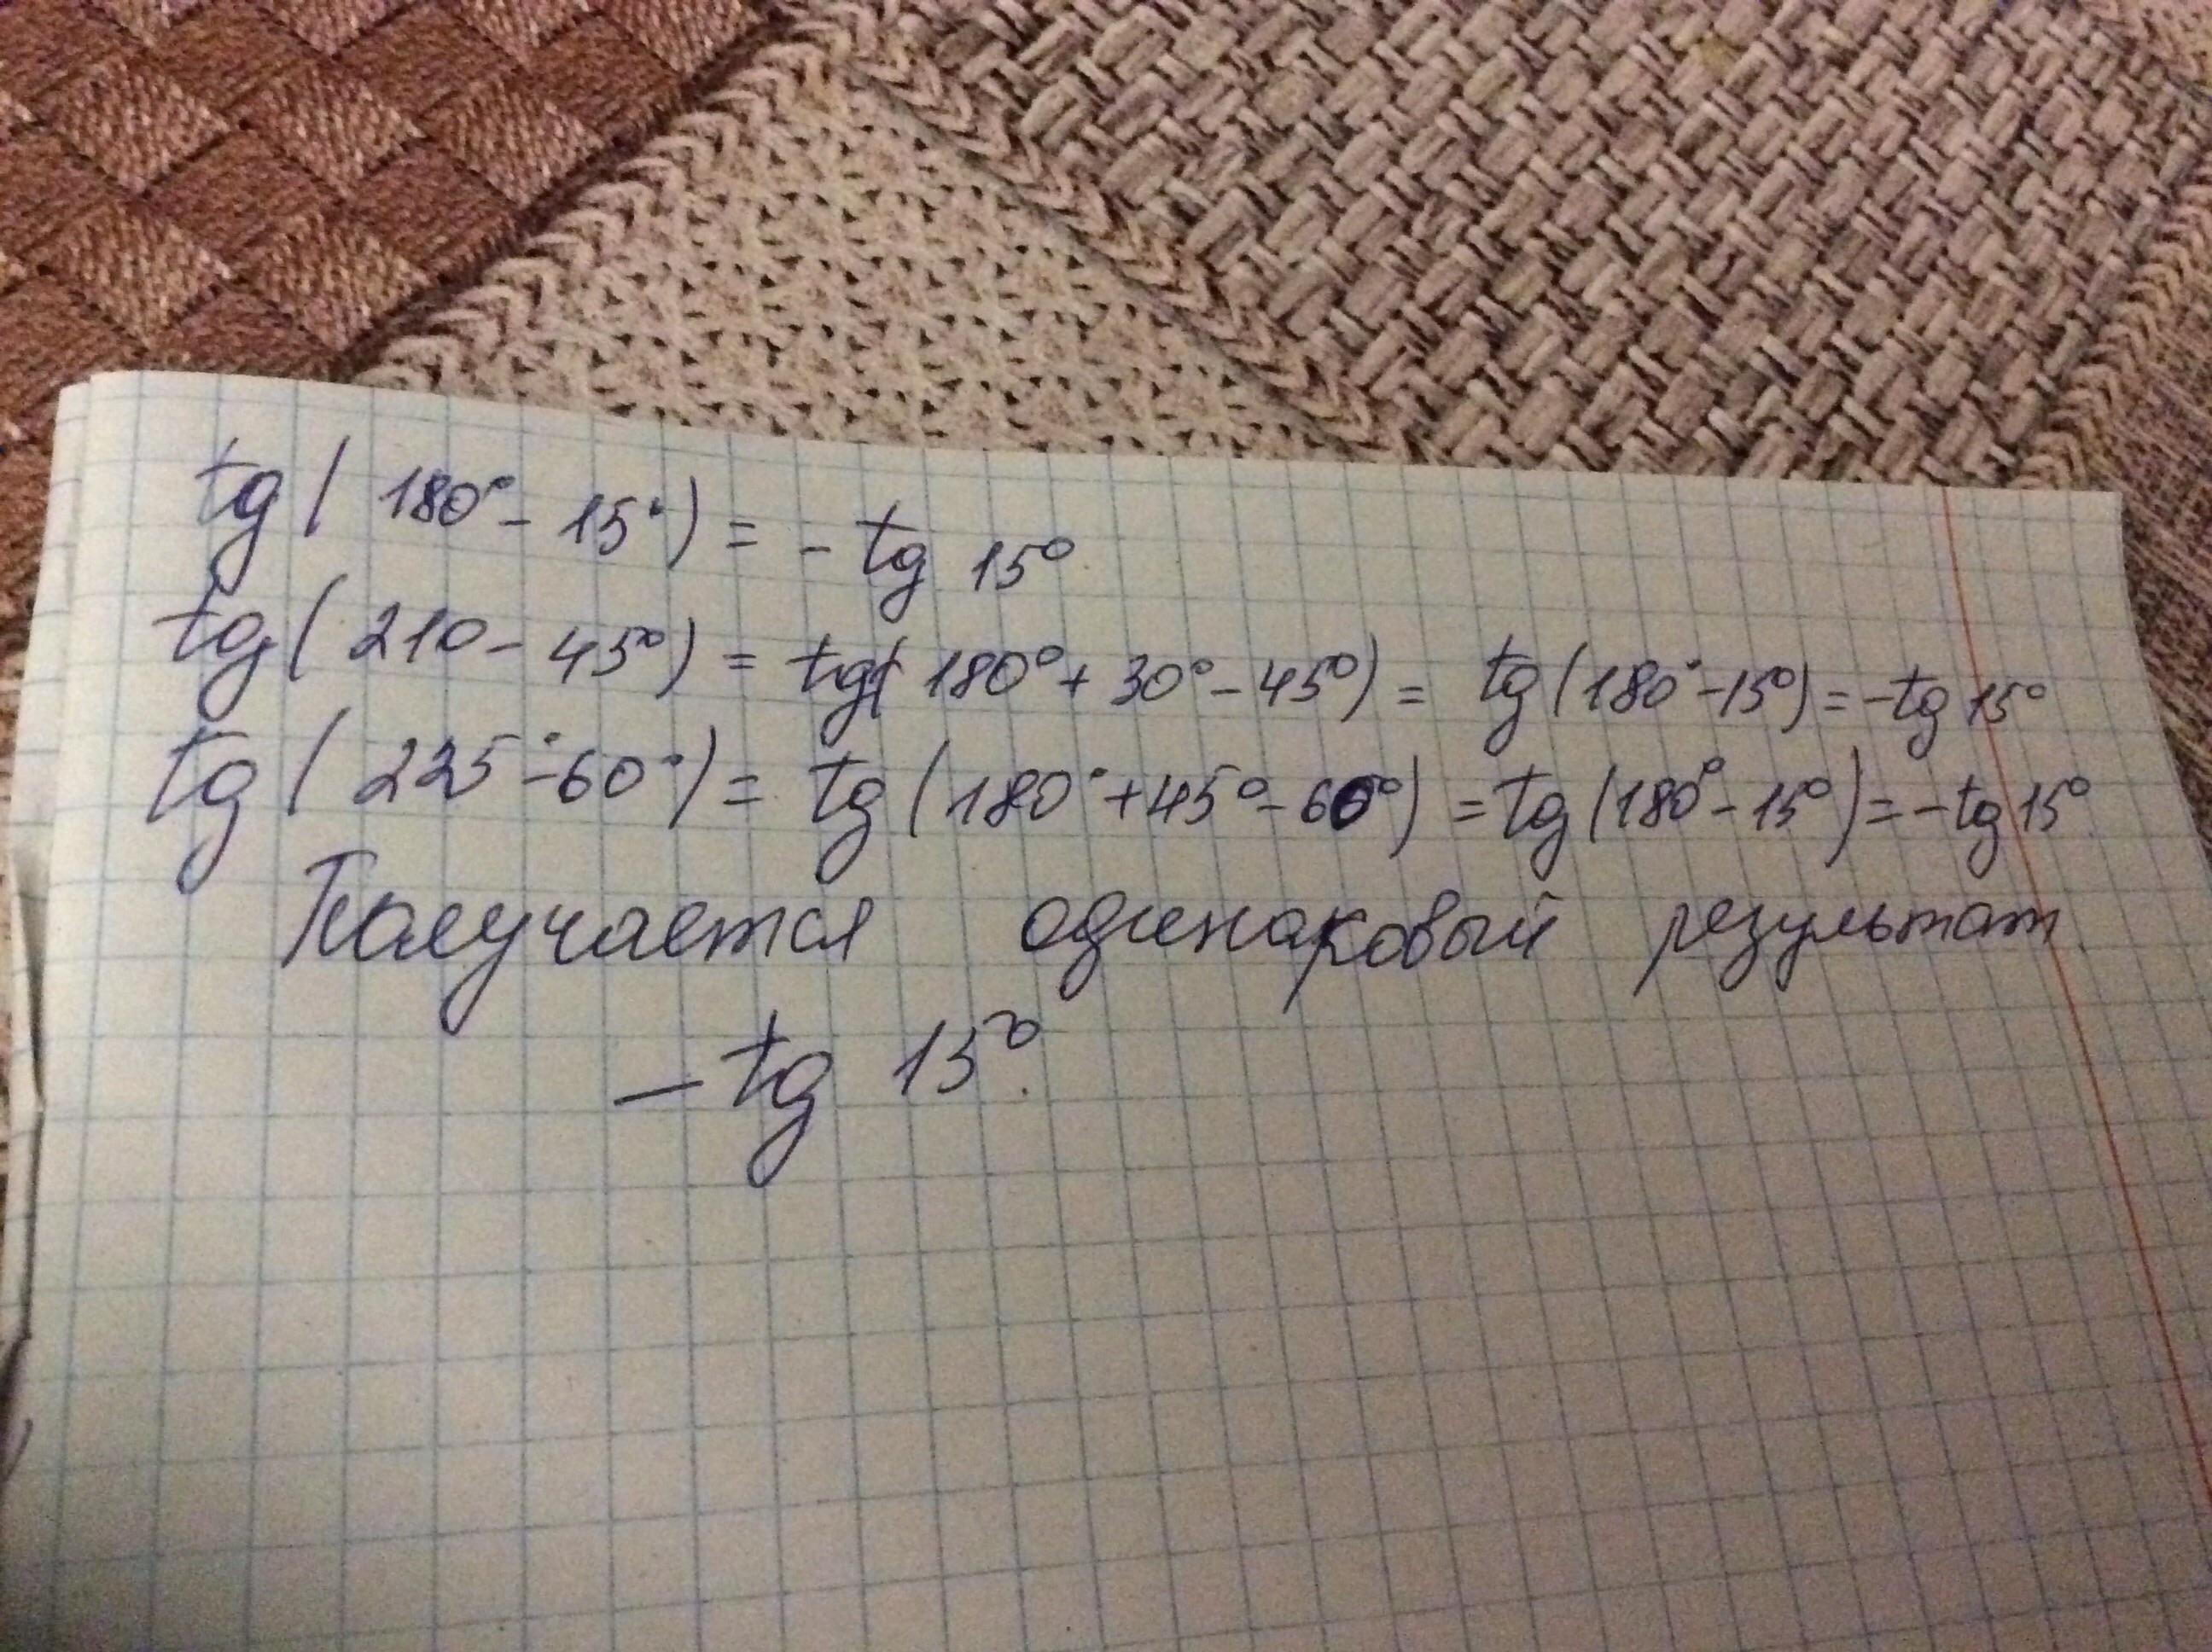 tg(180° - 15°) = - tg 15°
tg(210 - 45°) = tg(180° + 30° - 45°) = tg(180° - 15°) = - tg 15°
tg(225° - 60°) = tg(180° + 45° - 60°) = tg(180° - 15°) = - tg 15°
Получается одинаковый результат
- tg 15°.